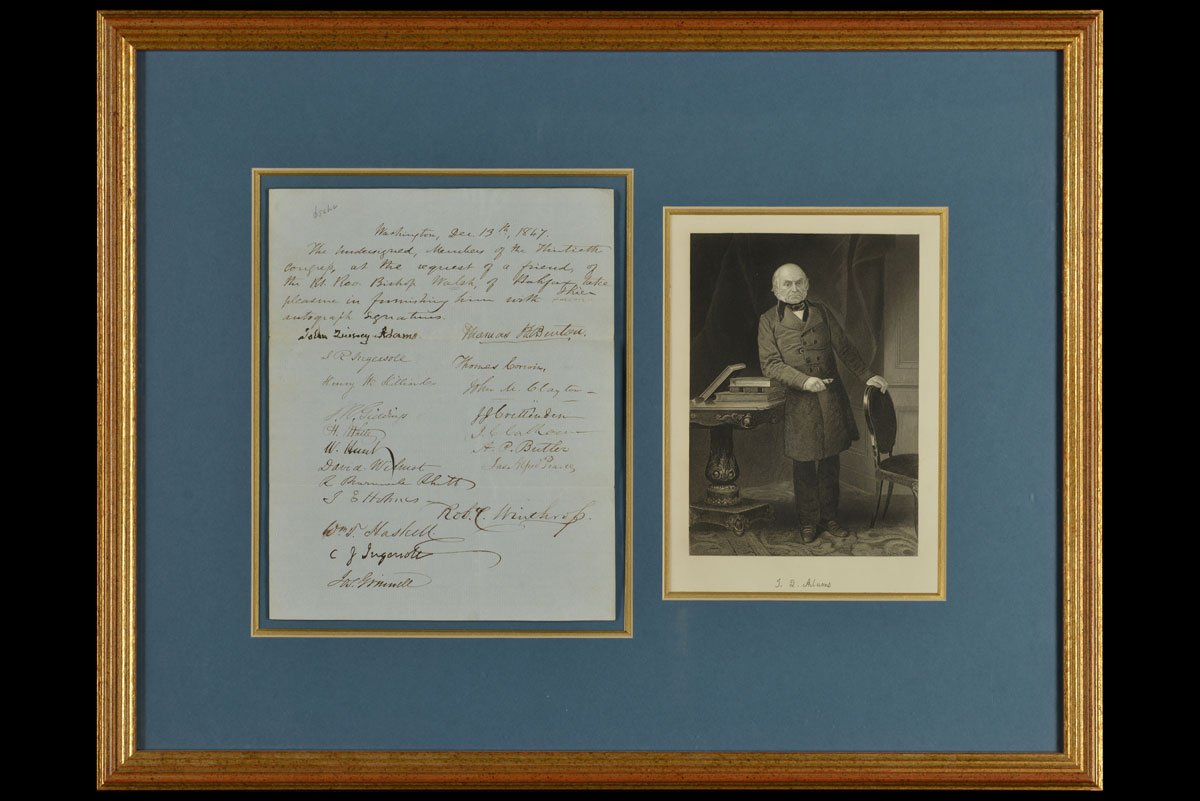 Washington, Dec 13th, 1847.
The Undersigned, Members of the Thirtieth
Congress, at the request of a friend, of
the Rt. Rev. Bishop Walsh, of Halifax, take
pleasure in furnishing him with their
autograph signatures.
John Quincy Adams. Thomas H Benton.
J R Ingersoll Thomas Corwin,
Henry W. John M. Clayton
J. R. Giddings J J Crittenden
H. White J. C. Calhoun
W. Hunt A. P. Butler
David Wilmot Jas Alfred Pearce
R Barnwell Rhett
I E Holmes
Robt. C. Winthrop.
Wm T. Haskell
C J Ingersoll
Jos. Grinnell
J. Q. Adams